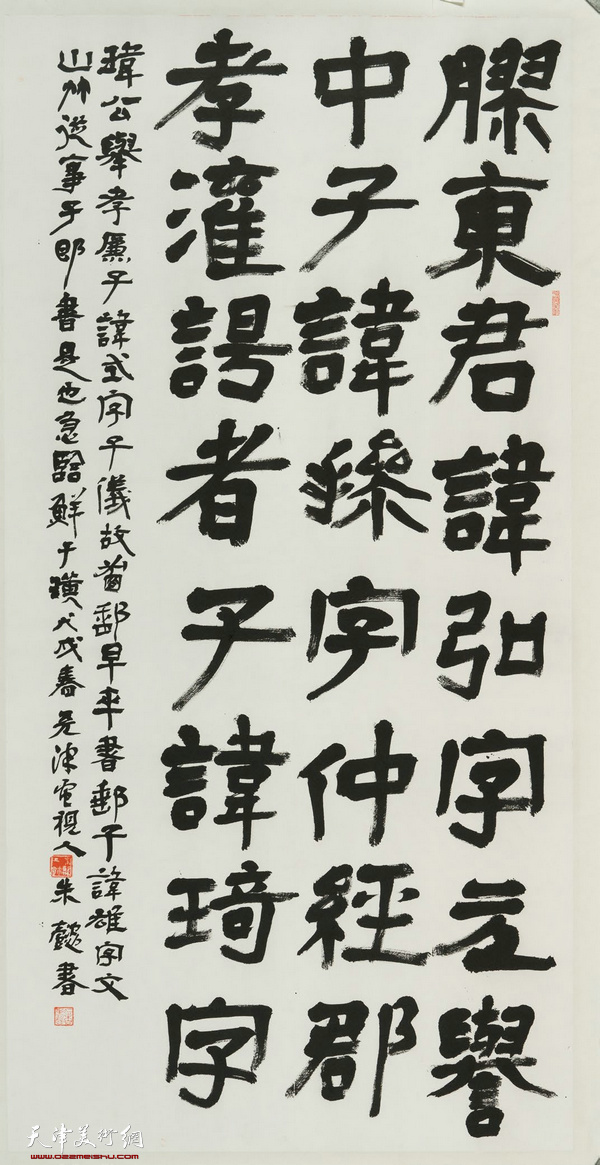 膠東君諱弘字元譽
中子諱孫字仲經郡
孝灌謁者子諱琦字
瑋公舉孝廉子諱式字子儀故督郵早卒書郵子諱雄字文
山州從事子郎書是也急臨鮮于璜戊戌春
朱懿書
天津美術網
www.022meishu.com